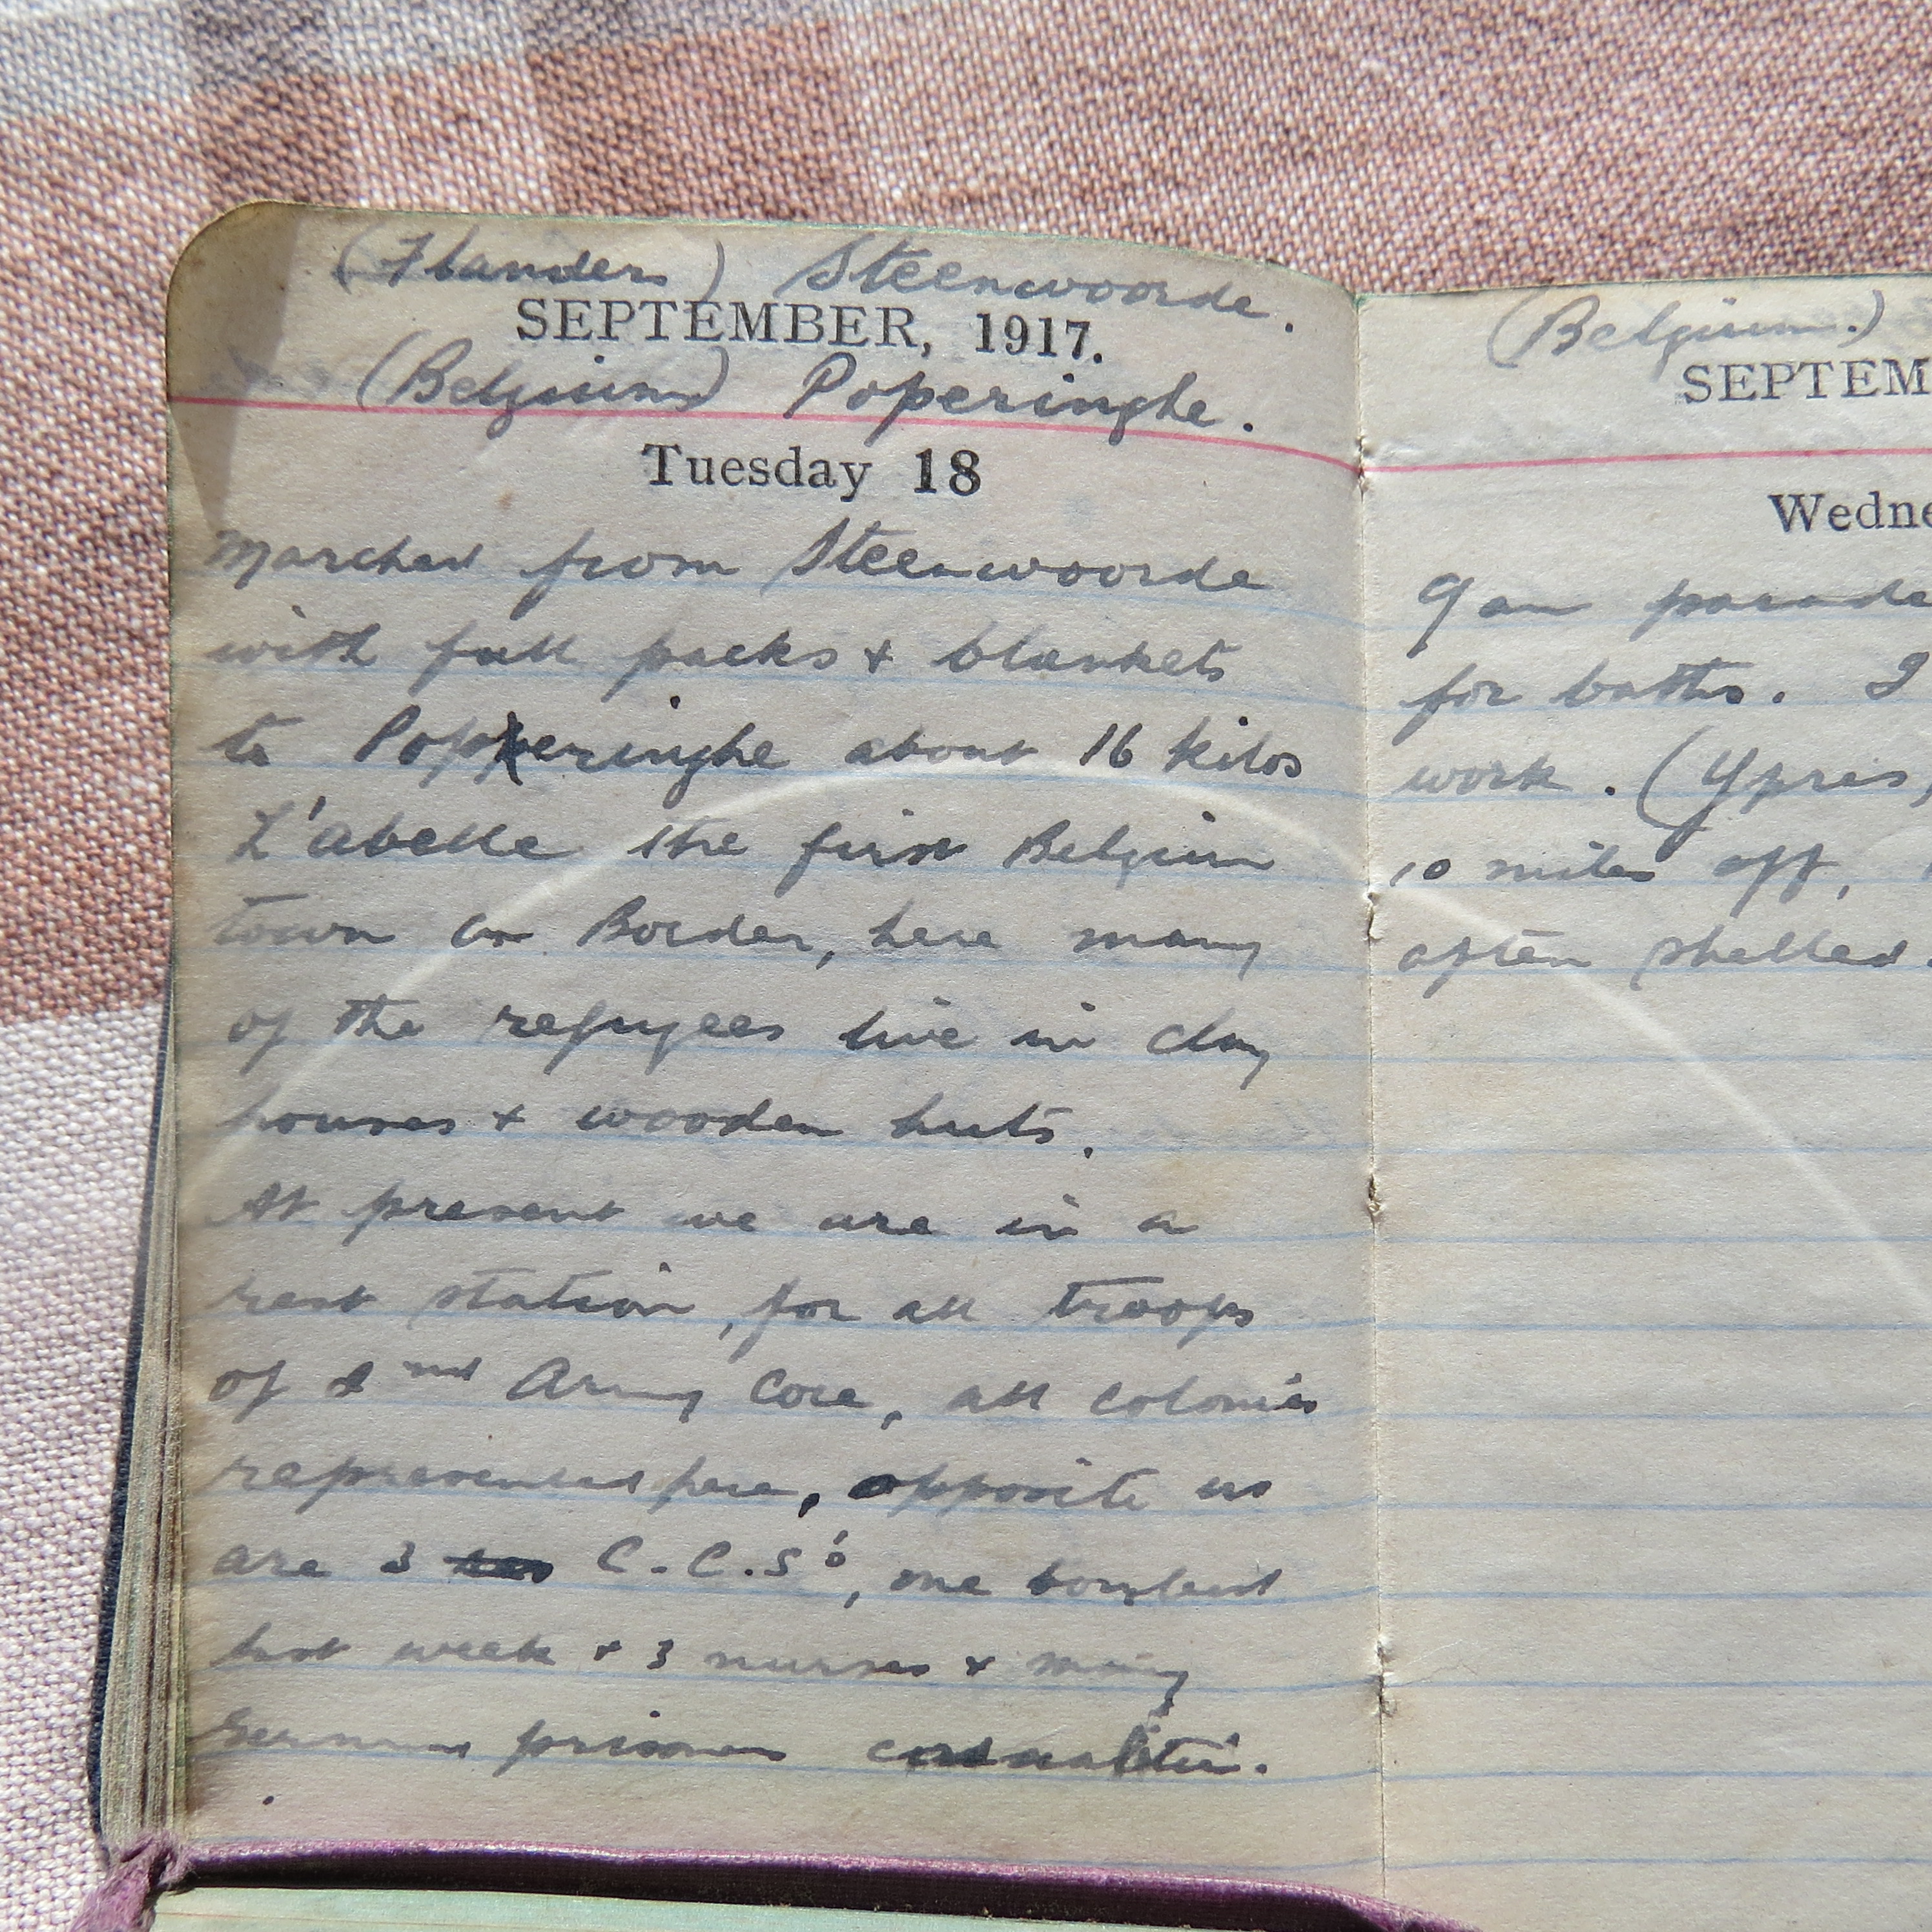 (Flanders) Steenwoorde.
SEPTEMBER, 1917.
(Belgium) Poperinghe.
Tuesday 18
Marched from Steenwoorde
with full packs & blankets
to Popperinghe about 16 kilos
L'abelle the first Belgium
town on Border, here many
of the refugees live in clay
houses & wooden huts.
At present we are in a
rest station, for all troops
of 2nd Army Core, all colonies
represented here, opposite us
are 3 C.C.S's, one bombed
last week & 3 nurses & many
German prisoners casualties.
(Belgium.)
SEPTEM
Wedne
9 am parade
for baths. I
work. (Ypres,
10 miles off,
often shelled.